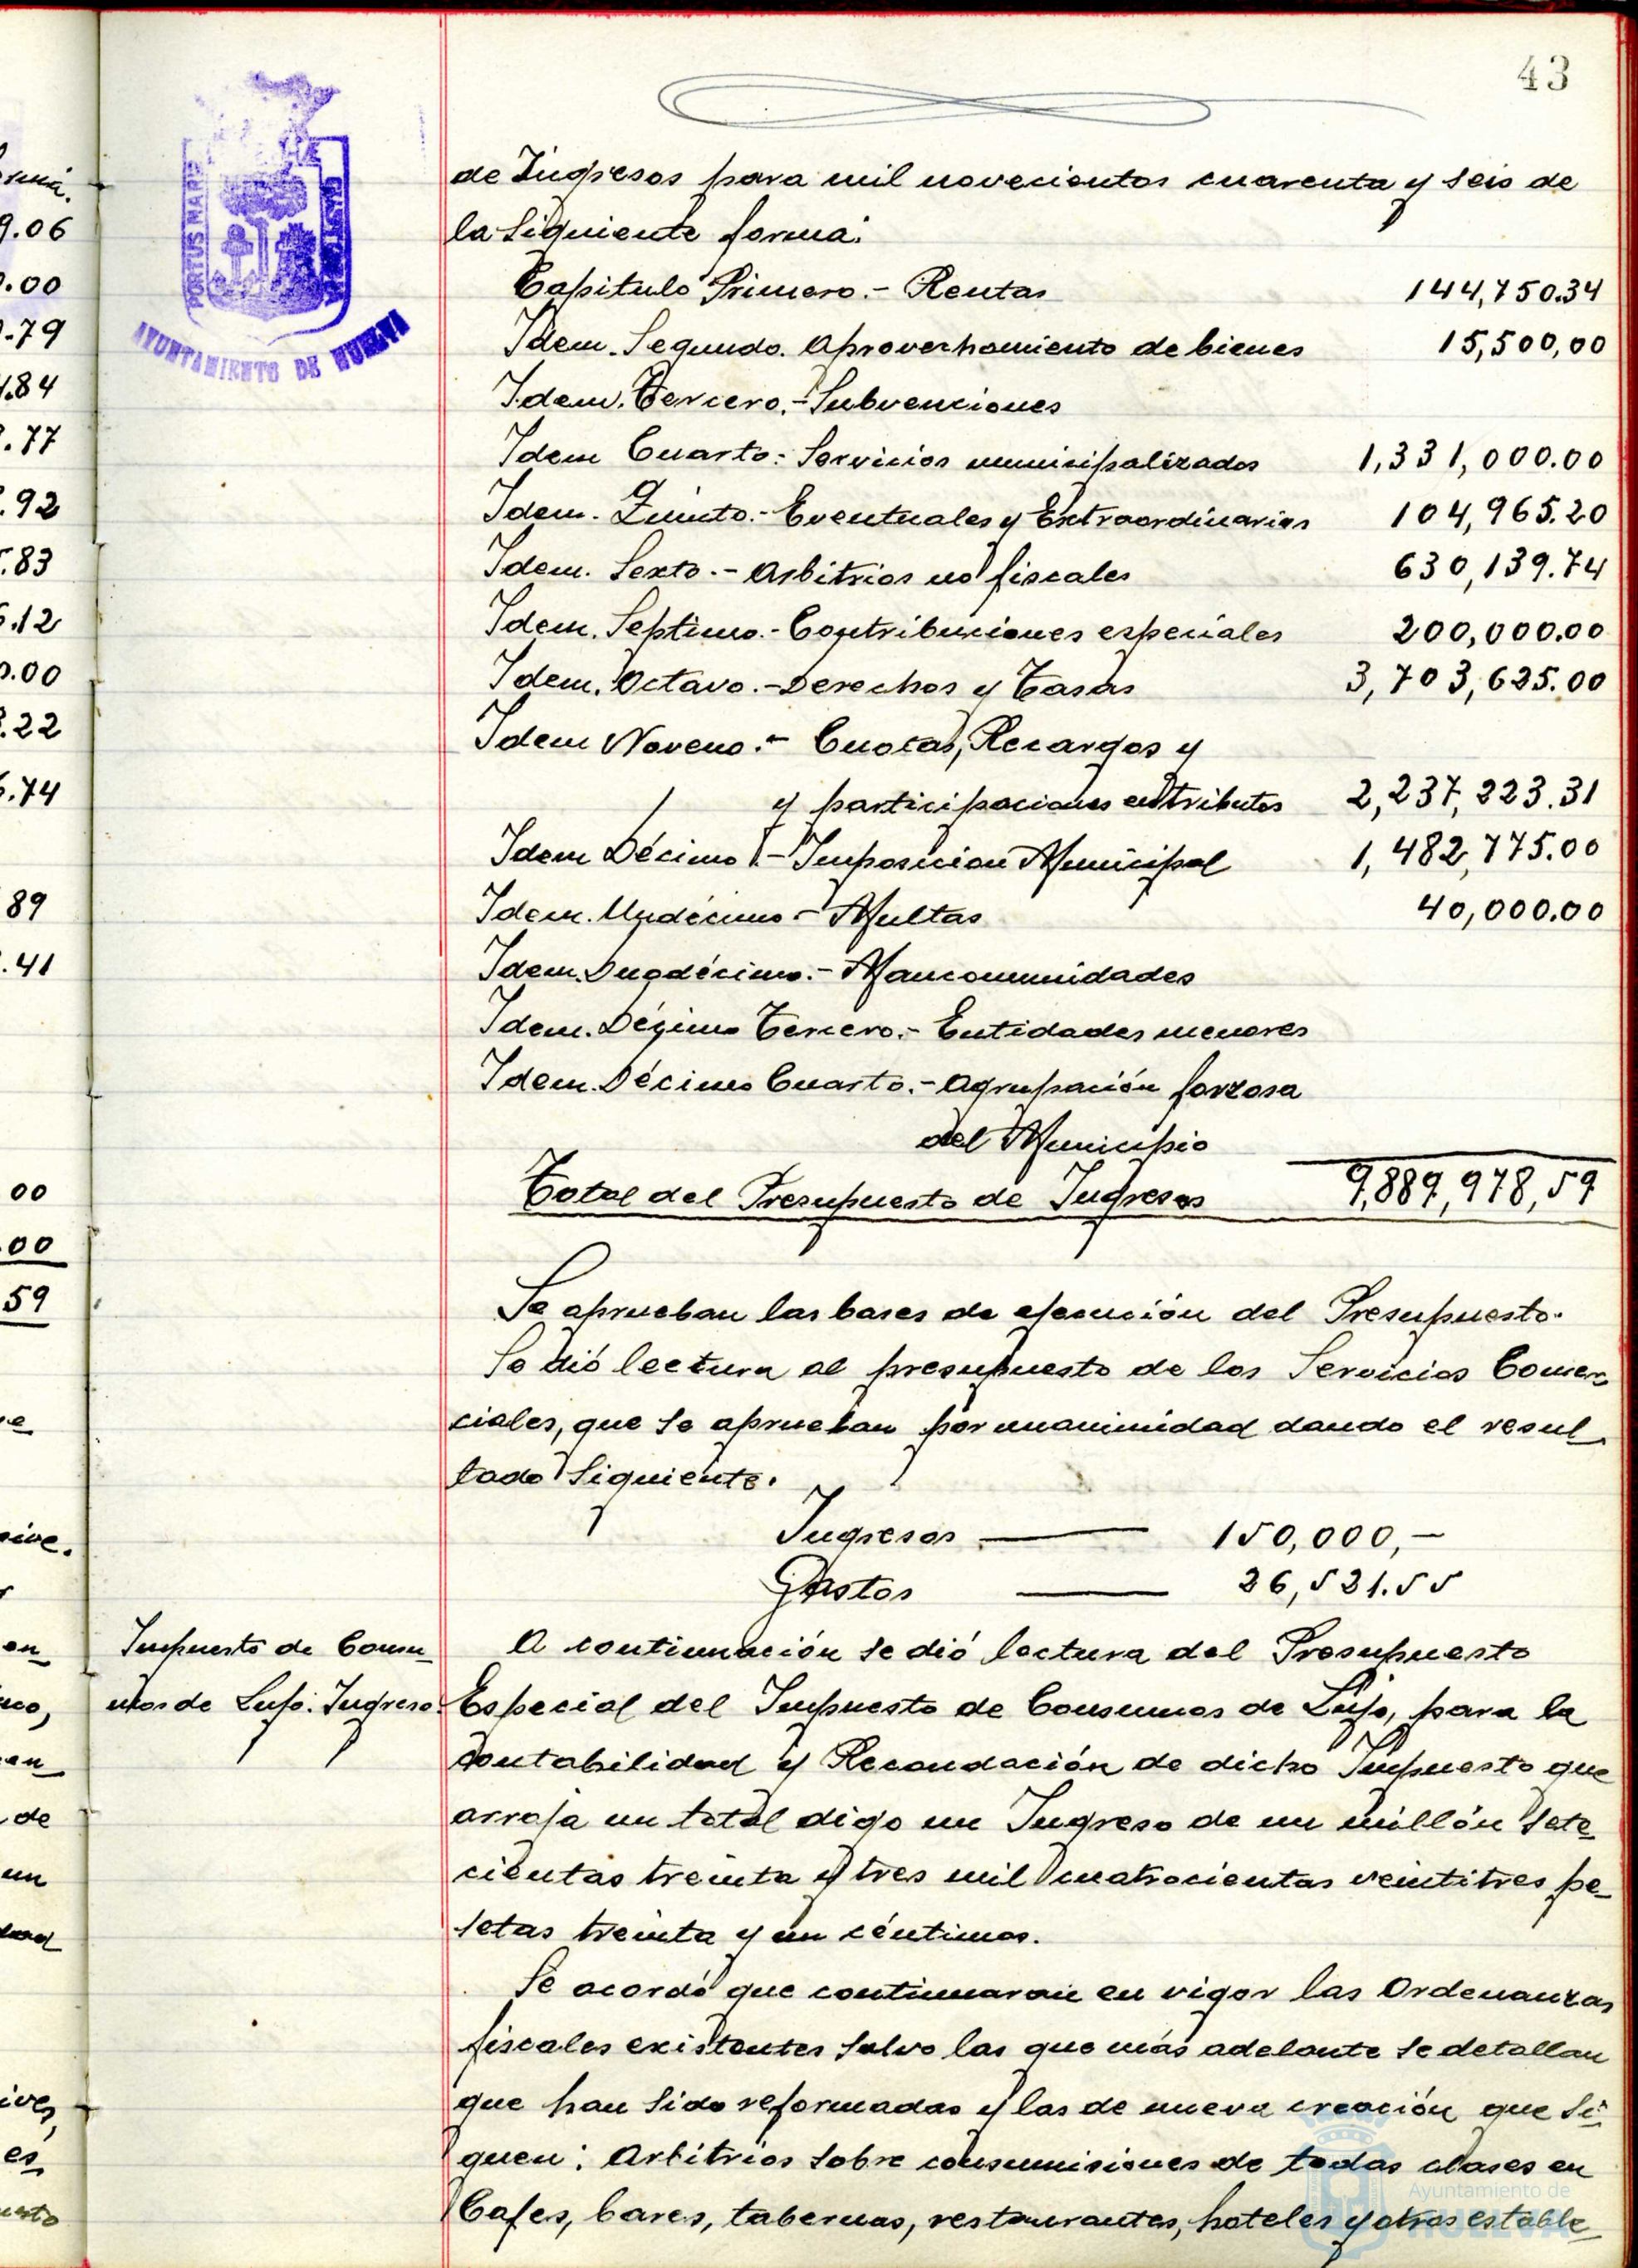 43
PORTUS MARIS
AYUNTAMIENTO DE HUELVA
de Ingresos para mil novecientos cuarenta y seis de
la siguiente forma:
Capitulo Primero.- Rentas 144,750.34
Idem. Segundo. Aprovechamiento de bienes 15,500,00
Idem. Tercero.- Subvenciones
Idem Cuarto: Servicios municipalizados 1,331,000.00
Idem. Quinto.- Eventuales y Extraordinarios 104,965.20
Idem. Sexto.- Arbitrios no fiscales 630,139.74
Idem. Septimo.- Contribuciones especiales 200,000.00
Idem. Octavo.- Derechos y Tasas 3,703,625.00
Idem Noveno.- Cuotas, Recargos y
y participaciones en tributos 2,237,223.31
Idem Décimo.- Imposicion Municipal 1,482,775.00
Idem. Undécimo - Multas 40,000.00
Idem. Duodécimo.- Mancomunidades
Idem. Décimo Tercero.- Entidades menores
Idem. Décimo Cuarto.- Agrupación forzosa
del Municipio
Total del Presupuesto de Ingresos 9,889,978,59
Se aprueban las bases de ejecución del Presupuesto.
Se dió lectura al presupuesto de los Servicios Comer-
ciales, que se aprueban por unanimidad dando el resul-
tado siguiente.
Ingresos — 150,000,—
Gastos — 26,521.55
Impuesto de Consu-
mos de Lujo. Ingreso.
A continuación se dió lectura del Presupuesto
Especial del Impuesto de Consumos de Lujo, para la
contabilidad y Recaudación de dicho Impuesto que
arroja un total digo un Ingreso de un millón sete-
cientas treinta y tres mil cuatrocientas veintitres pe-
setas treinta y un céntimos.
Se acordó que continuaran en vigor las Ordenanzas
fiscales existentes salvo las que más adelante se detallan
que han sido reformadas y las de nueva creación que si-
guen: Arbitrios sobre consumisiones de todas clases en
Cafes, bares, tabernas, restaurantes, hoteles y otros estable-
Ayuntamiento de
HUELVA